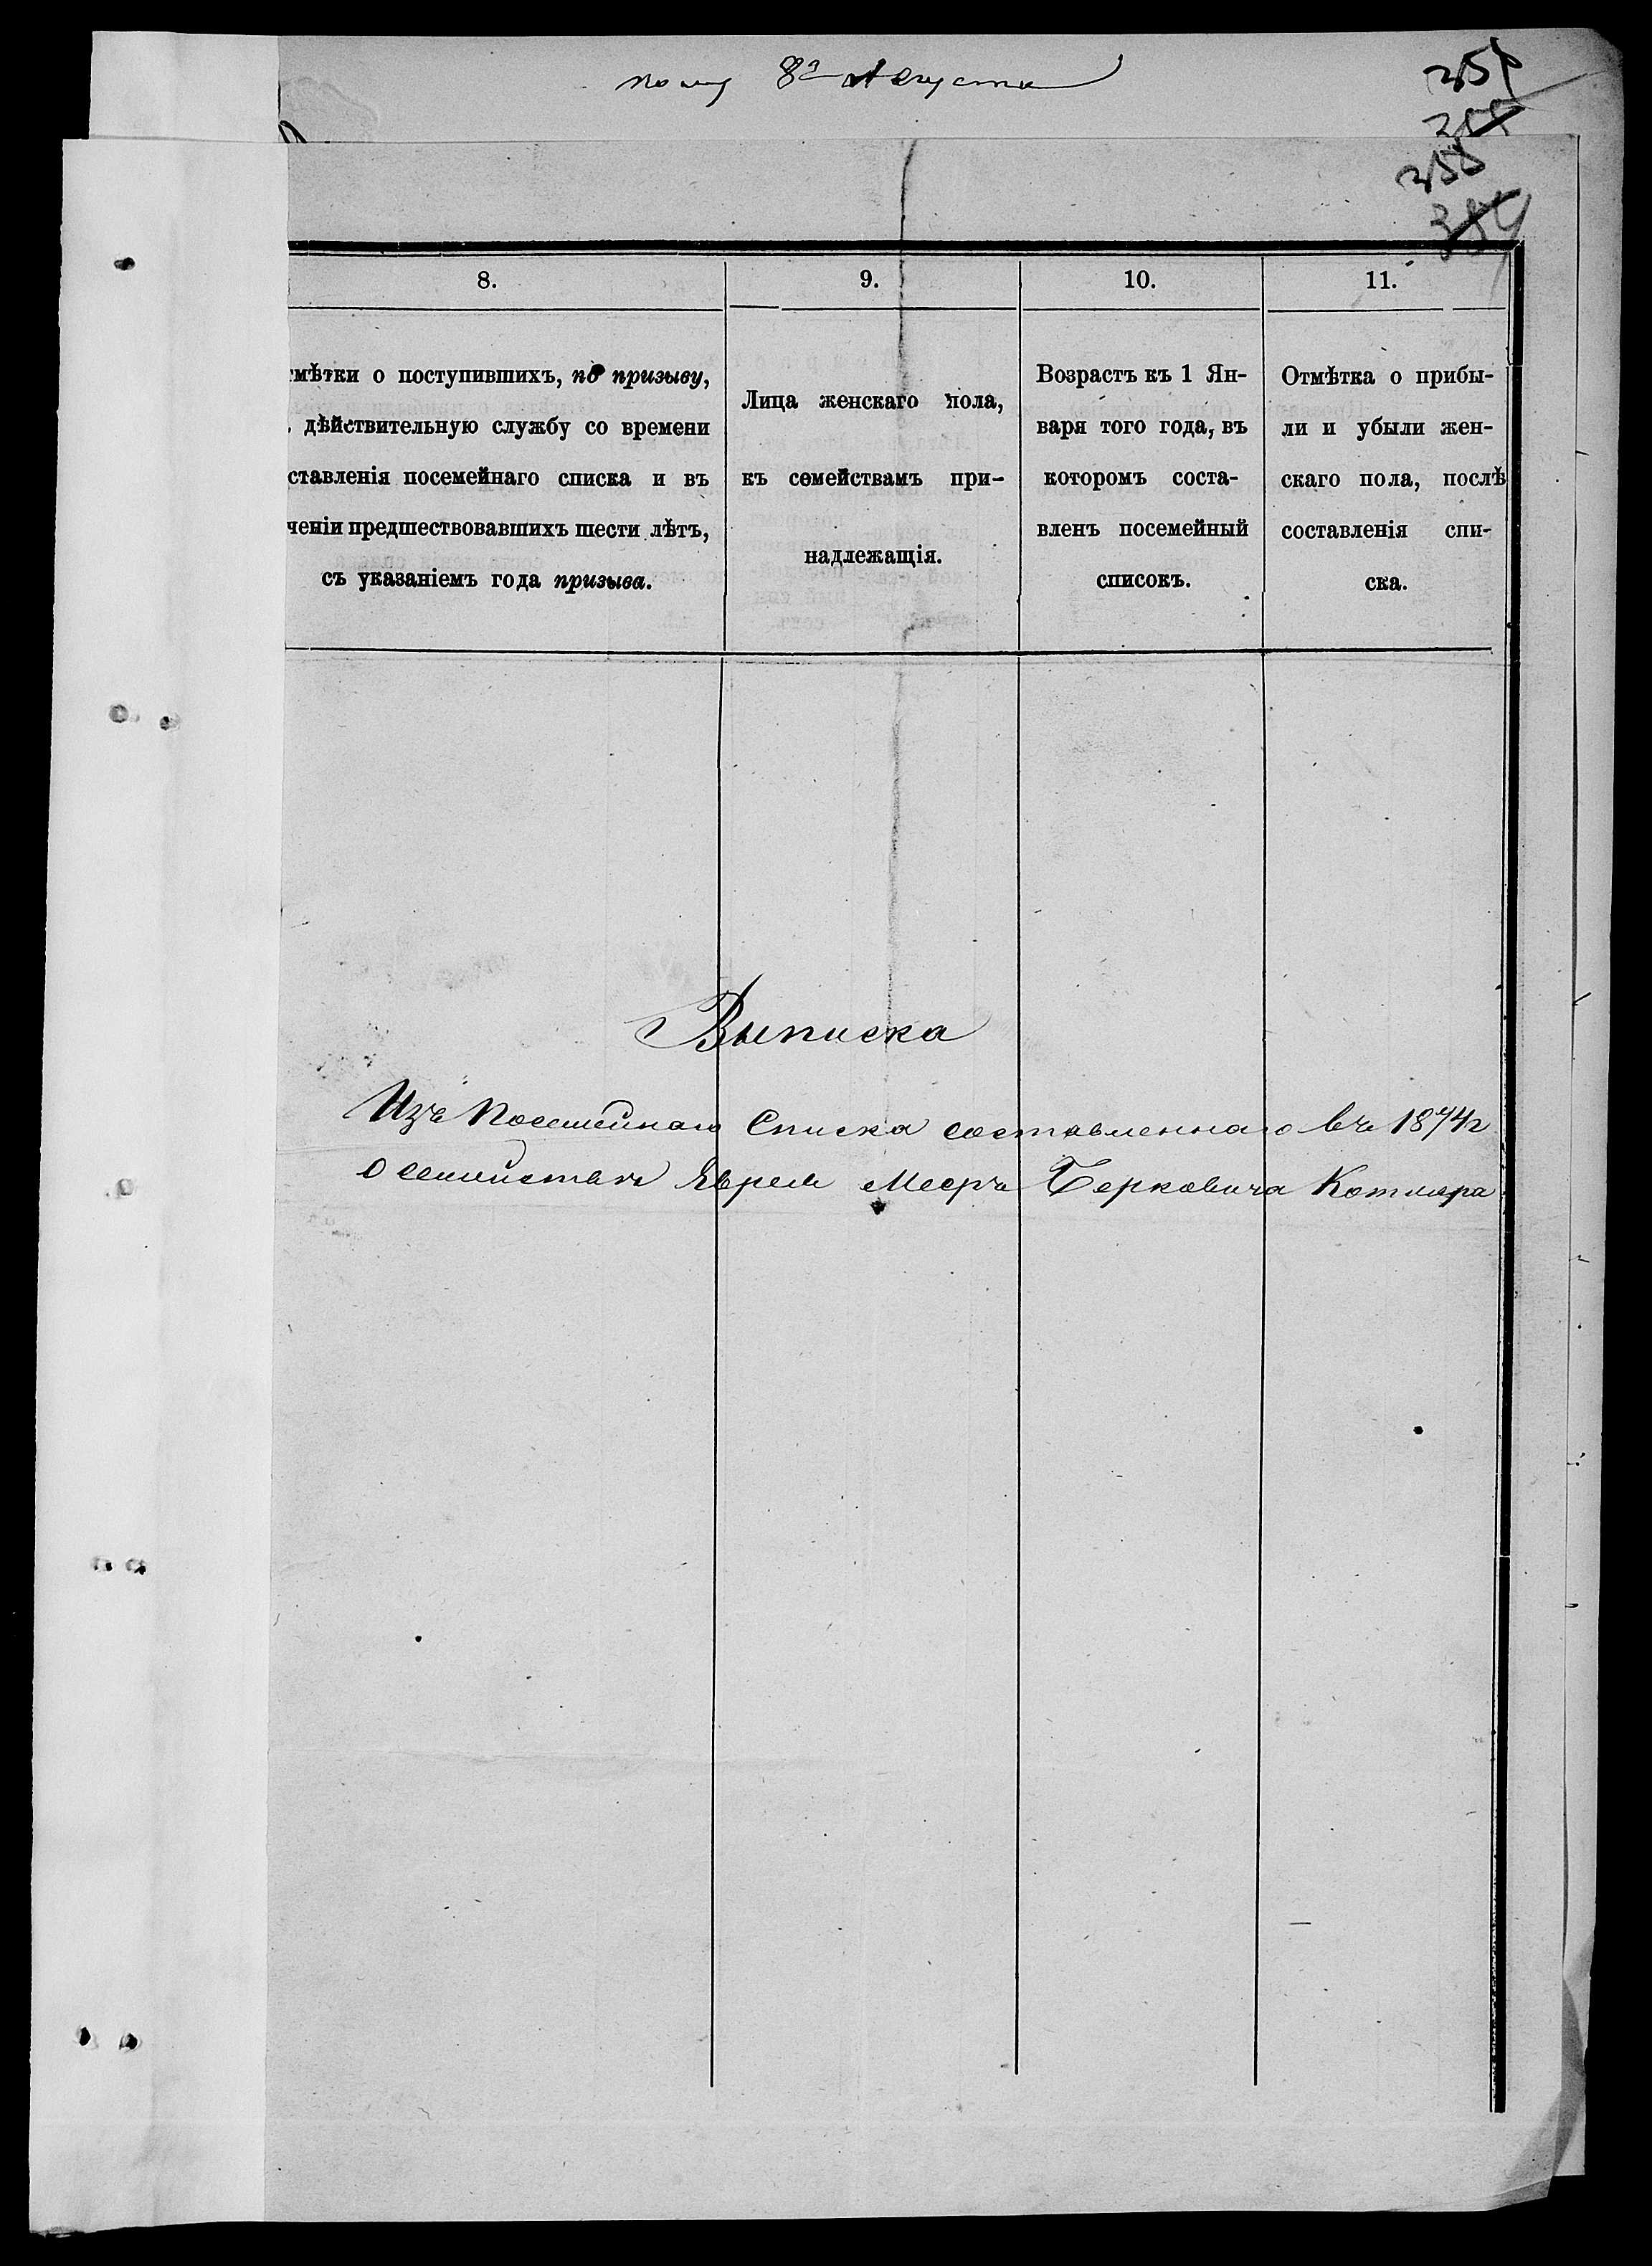 8го Августа
351
355
8.
9.
10.
11.
мѣтки о поступившихъ, по призыву,
дѣйствительную службу со времени
ставленія посемейнаго списка и въ
ченіи предшествовавшихъ шести лѣтъ,
съ указаніемъ года призыва.
Лица женскаго пола,
къ семействамъ при-
надлежащія.
Возрастъ къ 1 Ян-
варя того года, въ
которомъ соста-
вленъ посемейный
списокъ.
Отмѣтка о прибы-
ли и убыли жен-
скаго пола, послѣ
составленія спи-
ска.
Выписка
Изъ Посемейнаго Списка составленнаго въ 1874 г
о семействѣ Еврея Мееръ Берковича Котляра